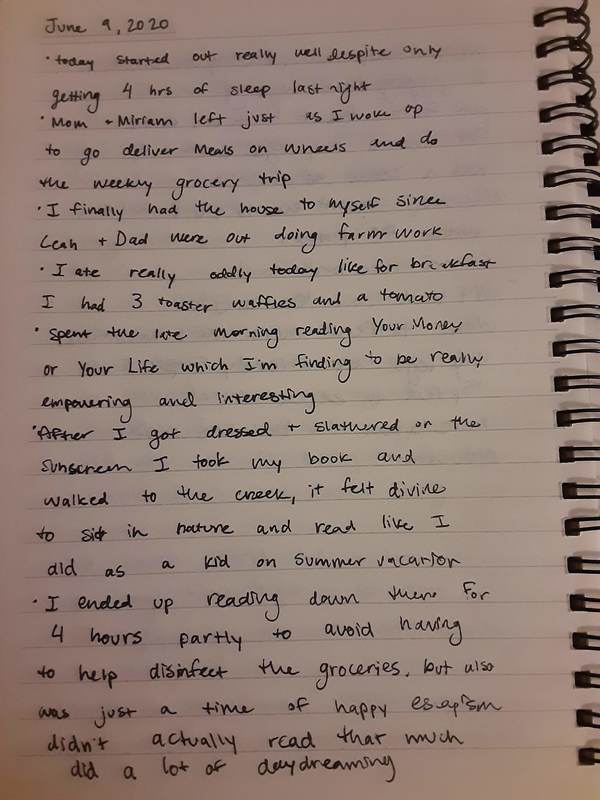 June 9, 2020
• today started out really well despite only
getting 4 hrs of sleep last night
• Mom + Miriam left just as I woke up
to go deliver Meals on Wheels and do
the weekly grocery trip
• I finally had the house to myself since
Leah + Dad were out doing farm work
• I ate really oddly today like for breakfast
I had 3 toaster waffles and a tomato
• Spent the late morning reading Your Money
or Your Life which I'm finding to be really
empowering and interesting
• After I got dressed + slathered on the
sunscreen I took my book and
walked to the creek, it felt divine
to sit in nature and read like I
did as a kid on summer vacation
• I ended up reading down there for
4 hours partly to avoid having
to help disinfect the groceries, but also
was just a time of happy escapism
didn't actually read that much
did a lot of daydreaming